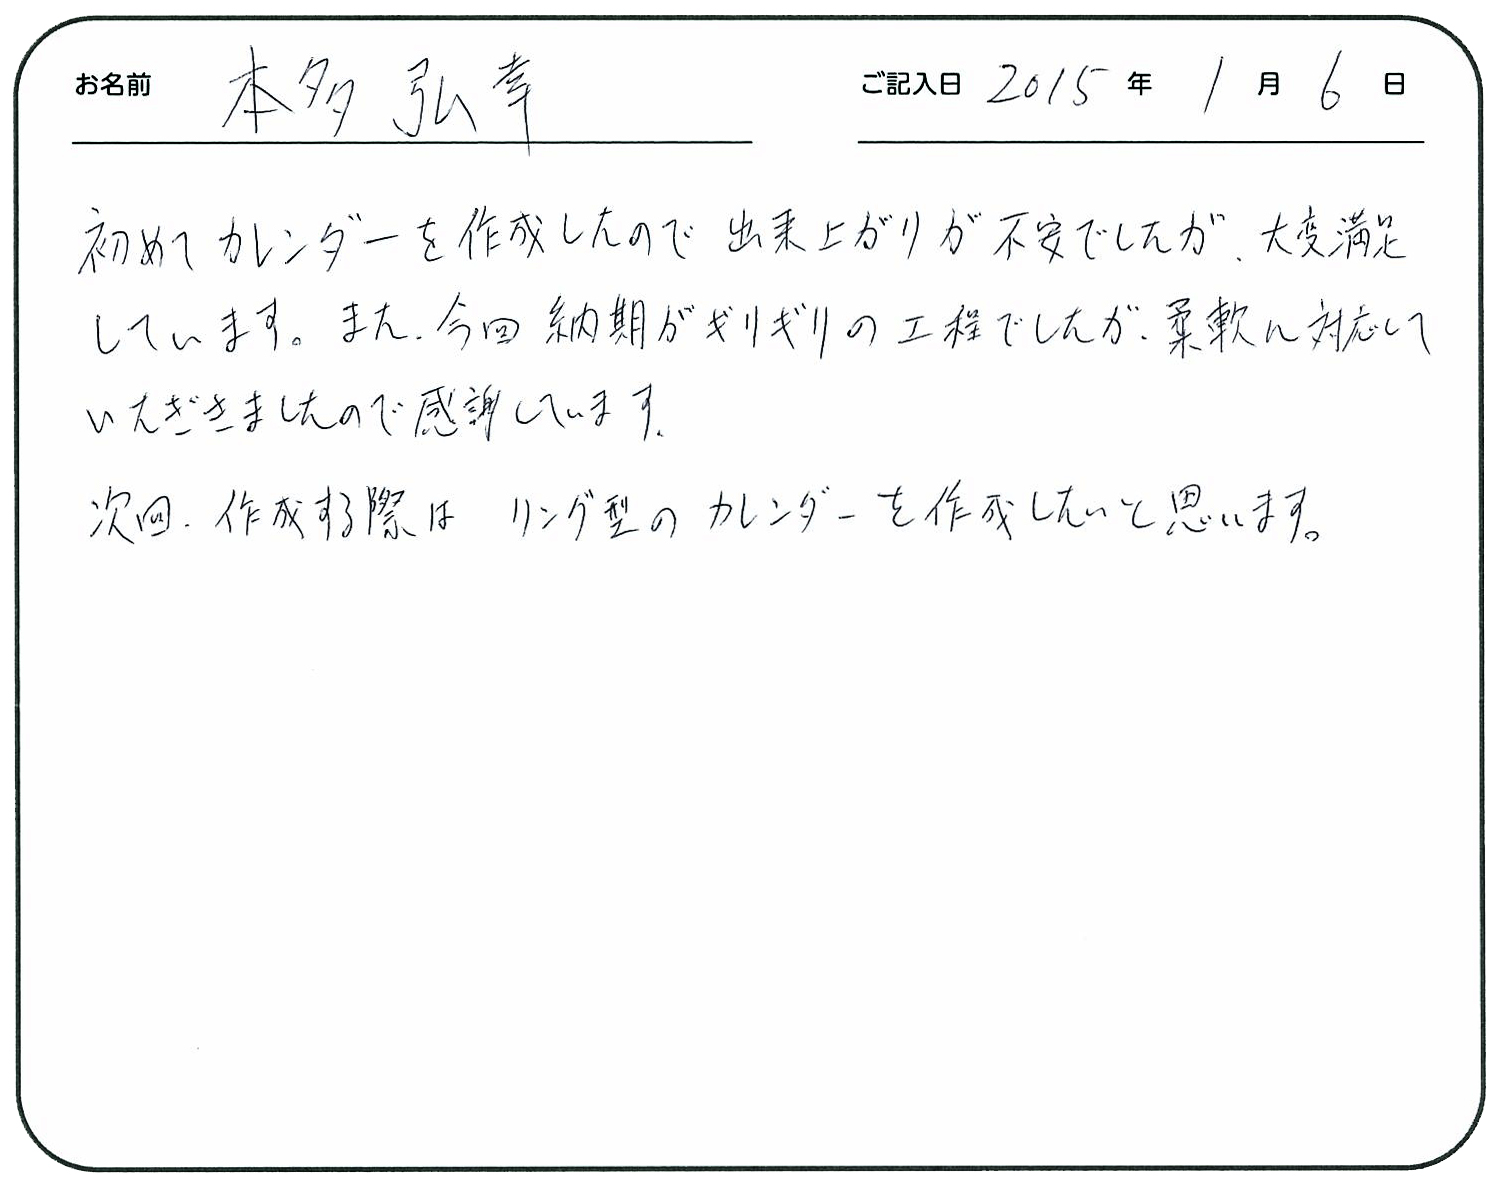 お名前 本多 弘幸 ご記入日 2015 年 1 月 6 日
初めてカレンダーを作成したので出来上がりが不安でしたが、大変満足
しています。また、今回納期がギリギリの工程でしたが、柔軟に対応して
いただきましたので感謝しています。
次回、作成する際は リング型のカレンダーを作成したいと思います。